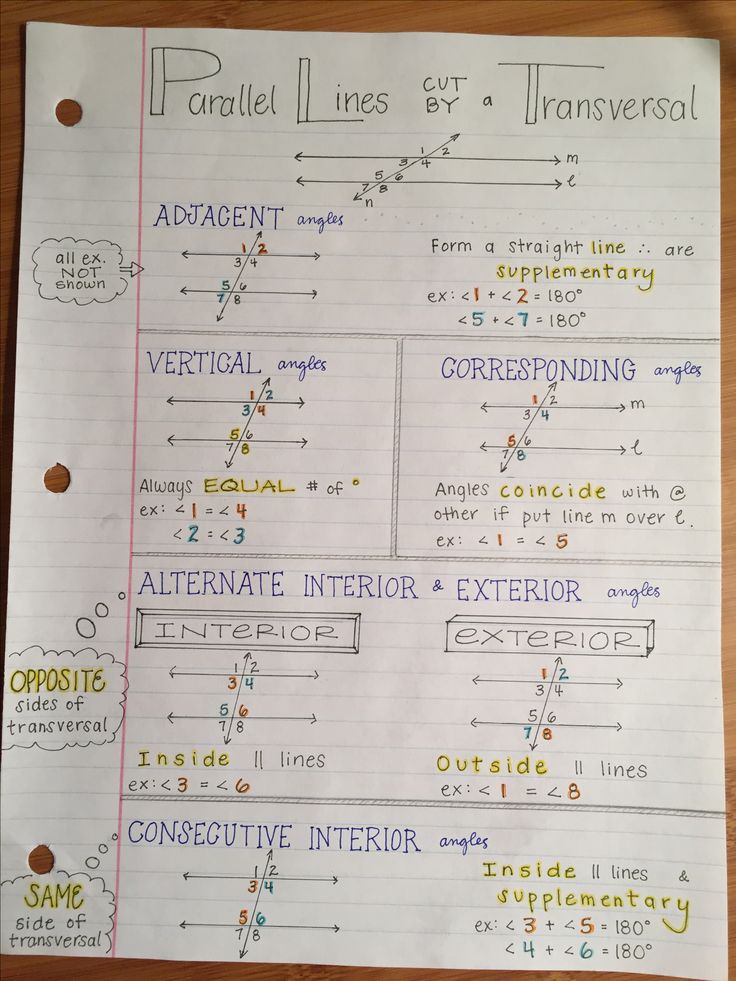 Parallel Lines CUT BY a Transversal
1 2
3 4 m
5 6
7 8 l
n
ADJACENT angles
all ex.
NOT
shown
1 2
3 4
5 6
7 8
Form a straight line ∴ are
supplementary
ex: <1 + <2 = 180°
<5 + <7 = 180°
VERTICAL angles
1 2
3 4
5 6
7 8
Always EQUAL # of °
ex: <1 = <4
<2 = <3
CORRESPONDING angles
1 2 m
3 4
5 6 l
7 8
Angles coincide with @
other if put line m over l.
ex: <1 = <5
ALTERNATE INTERIOR & EXTERIOR angles
OPPOSITE
sides of
transversal
INTERIOR
1 2
3 4
5 6
7 8
Inside || lines
ex: <3 = <6
EXTERIOR
1 2
3 4
5 6
7 8
Outside || lines
ex: <1 = <8
CONSECUTIVE INTERIOR angles
SAME
side of
transversal
1 2
3 4
5 6
7 8
Inside || lines &
supplementary
ex: <3 + <5 = 180°
<4 + <6 = 180°